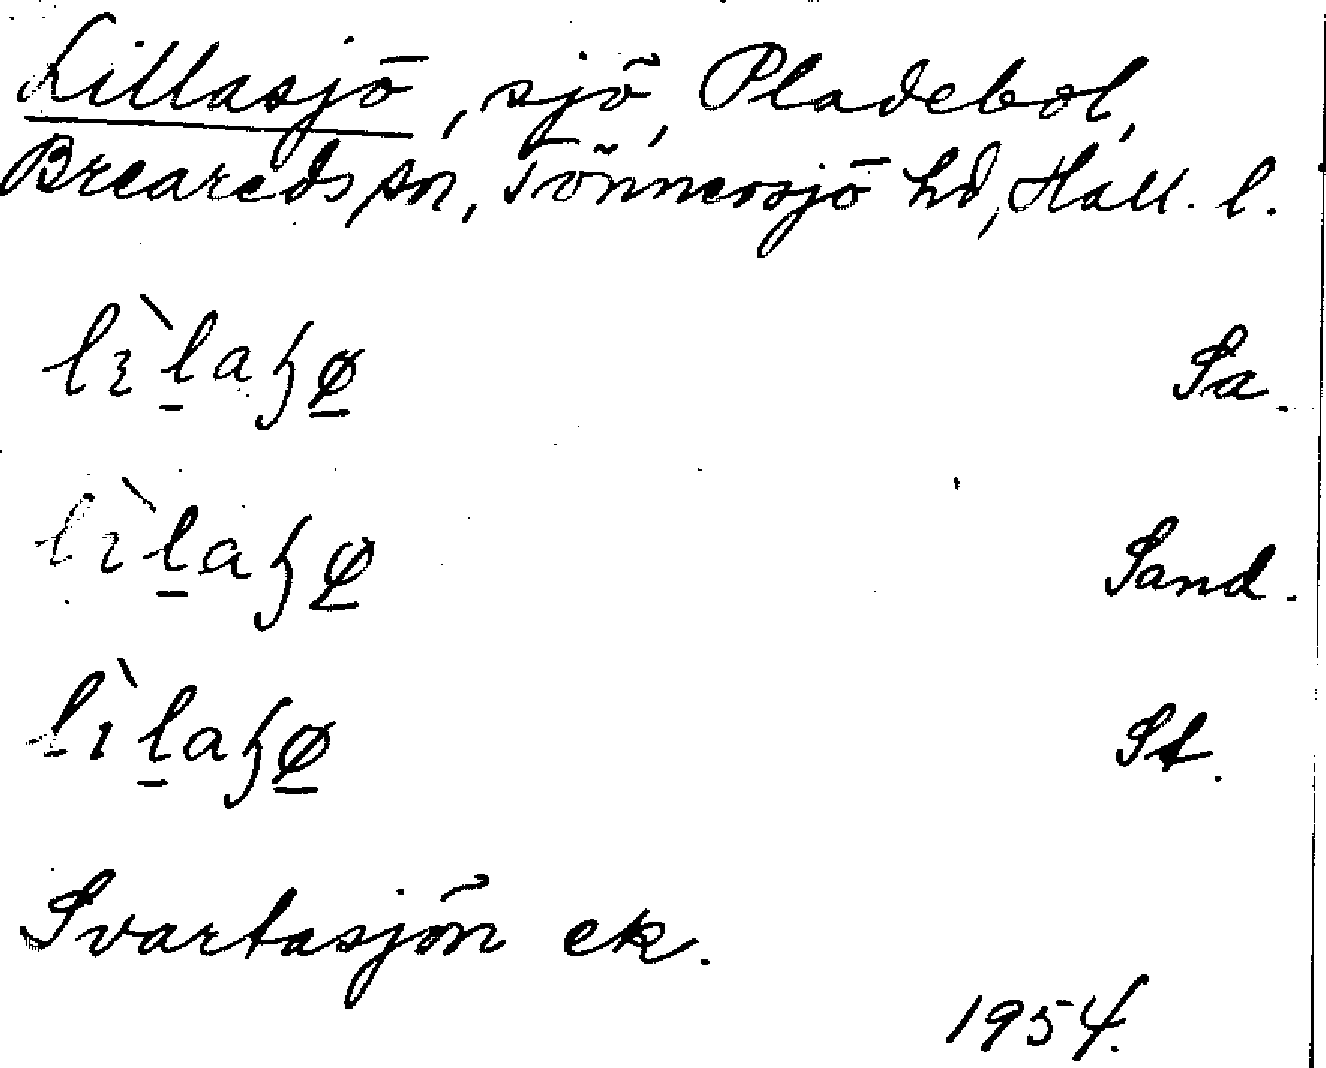 Lillasjö, sjö, Pladebol,
Breareds sn, Tönnersjö hd, Hall. l.
lìlaɧø Sa.
lìlaɧø Sand.
lìlaɧø St.
Svartasjön ek.
1954.